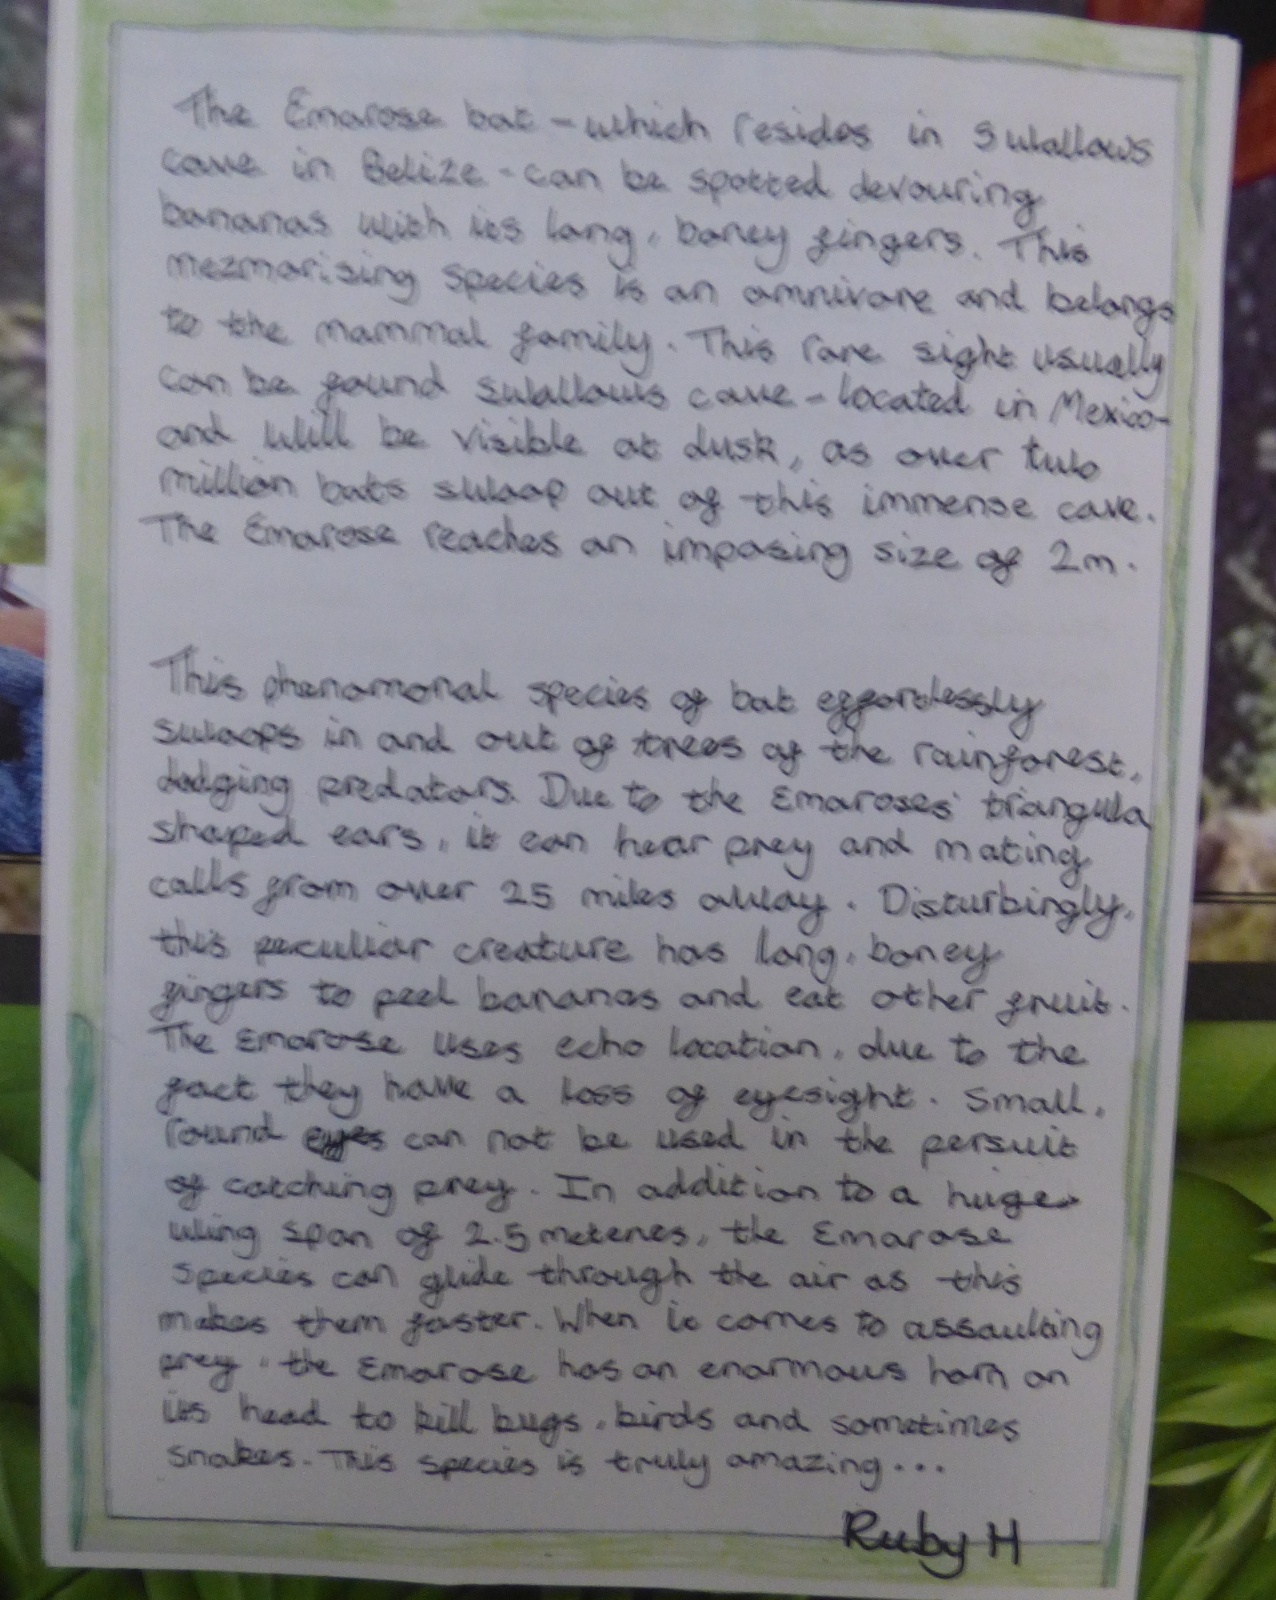 The Emarose bat - which resides in Swallows
cave in Belize - can be spotted devouring
bananas with its long, boney fingers. This
mezmorising species is an omnivore and belongs
to the mammal family. This rare sight usually
can be found swallows cave - located in Mexico -
and will be visible at dusk, as over two
million bats swoop out of this immense cave.
The Emarose reaches an imposing size of 2m.
This phenomonal species of bat effortlessly
swoops in and out of trees of the rainforest,
dodging predators. Due to the Emaroses' triangula
shaped ears, it can hear prey and mating
calls from over 25 miles away. Disturbingly,
this peculiar creature has long, boney
fingers to peel bananas and eat other fruit.
The Emarose uses echo location, due to the
fact they have a loss of eyesight. Small,
round eyes can not be used in the persuit
of catching prey. In addition to a huge
wing span of 2.5 meteres, the Emarose
species can glide through the air as this
makes them faster. When it comes to assaulting
prey, the Emarose has an enormous horn on
its head to kill bugs, birds and sometimes
snakes. This species is truly amazing...
Ruby H